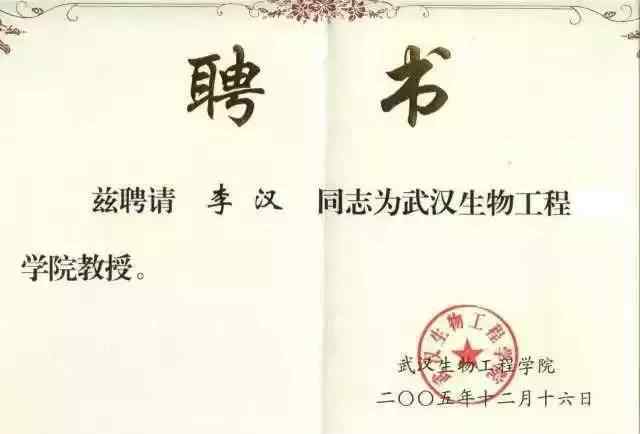 聘书
兹聘请 李汉 同志为武汉生物工程
学院教授。
武汉生物工程学院
武汉生物工程学院
二〇〇五年十二月十六日